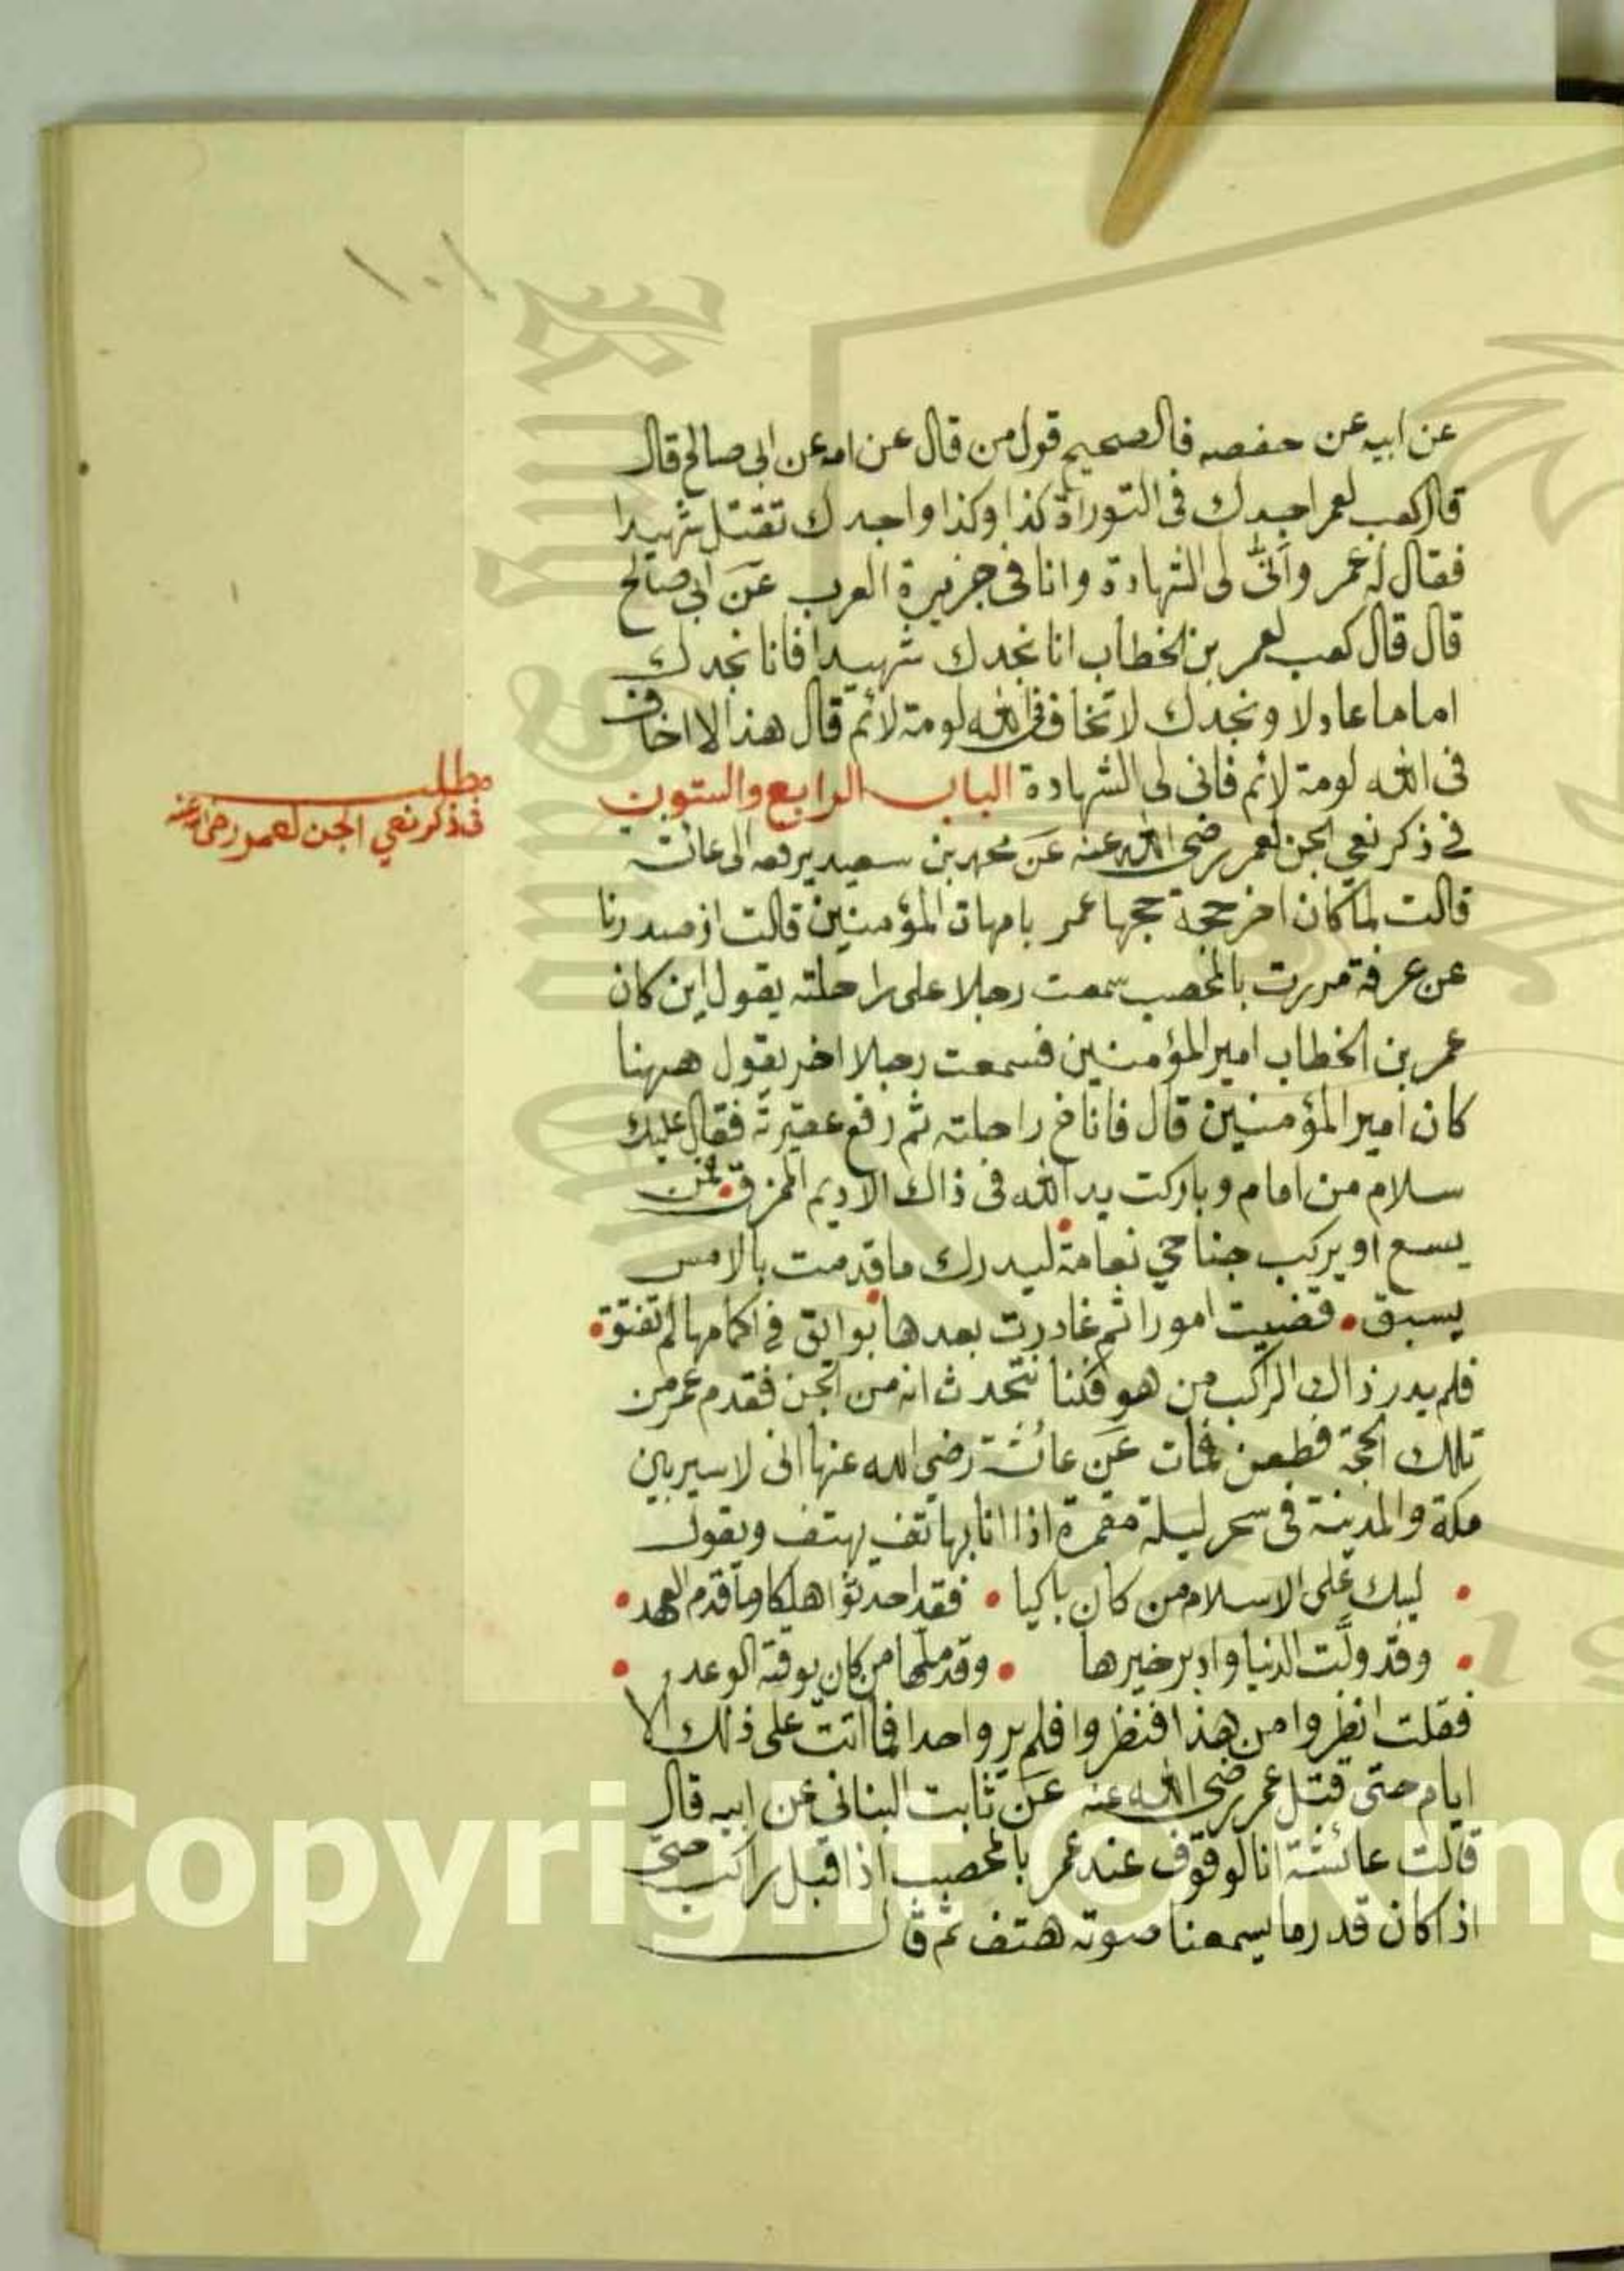 ١٠١
عن ابيه عن حفصه فالصحيح قول من قال عن امه عن ابي صالح قال
قال كعب لعمر اجدك في التوراة كذا وكذا واجدك تقتل شهيدا
فقال له عمر وأنّى لي الشهادة وانا في جزيرة العرب عن ابي صالح
قال قال كعب لعمر بن الخطاب انا نجدك شهيدا فانا نجدك
اماما عادلا ونجدك لا تخاف في الله لومة لائم قال هذا لا اخاف
في الله لومة لائم فاني لي الشهادة الباب الرابع والستون
مطلب
في ذكر نعي الجن لعمر رضي الله عنه
في ذكر نعي الجن لعمر رضي الله عنه عن محمد بن سعيد يرفعه الى عائشة
قالت لما كان اخر حجة حجها عمر بامهات المؤمنين قالت اذ صدرنا
عن عرفة مررت بالمحصب سمعت رجلا على راحلته يقول اين كان
عمر بن الخطاب امير المؤمنين فسمعت رجلا اخر يقول ههنا
كان امير المؤمنين قال فاناخ راحلته ثم رفع عقيرته فقال عليك
سلام من امام وباركت يد الله في ذاك الاديم الممزق • فمن
يسع او يركب جناحي نعامة • ليدرك ما قدمت بالامس
يسبق • قضيت امورا ثم غادرت بعدها • بوائق في اكمامها لم تفتق •
فلم يدر ذاك الراكب من هو فكنا نتحدث انه من الجن فقدم عمر من
تلك الحجة فطعن فمات عن عائشة رضي الله عنها اني لاسير بين
مكة والمدينة في سحر ليلة مقمرة اذا انا بهاتف يهتف ويقول
• ليبك على الاسلام من كان باكيا • فقد احدثوا هلكا وما قدم العهد •
• وقد ولّت الدنيا وادبر خيرها • وقد ملها من كان يوقن الوعد •
فقلت انظروا من هذا فنظروا فلم ير واحدا فما اتت على ذلك الا
ايام حتى قتل عمر رضي الله عنه عن ثابت البناني عن ابيه قال
قالت عائشة انا لوقوف عند عمر بالمحصب اذا قبل راكب حتى
اذا كان قدر ما يسمعنا صوته هتف ثم قال
Copyright © King